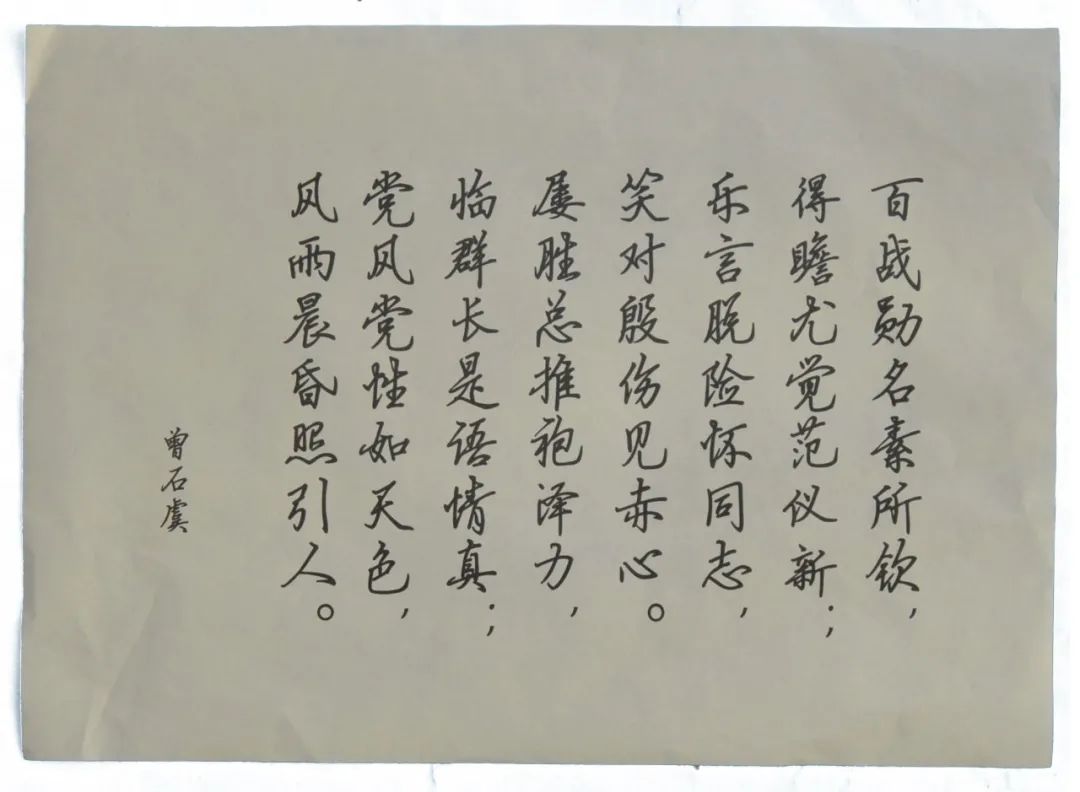 百战勋名素所钦，
得瞻尤觉范仪新；
乐言脱险怀同志，
笑对殷伤见赤心。
屡胜总推袍泽力，
临群长是语情真；
党风党性如天色，
风雨晨昏照引人。
曾石虞